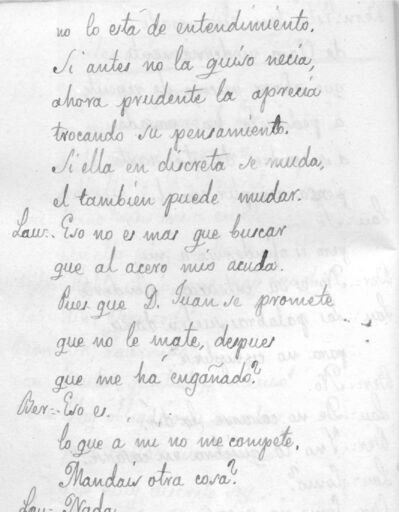 no lo está de entendimiento.
Si antes no la quiso necia,
ahora prudente la aprecia
trocando su pensamiento.
Si ella en discreta se muda,
el también puede mudar.
Lau- Eso no es mas que buscar
que al acero mio acuda.
Pues que D. Juan se promete
que no le mate, despues
que me há engañado?
Ber- Eso es.
lo que a mi no me compete.
Mandais otra cosa?
Lau- Nada